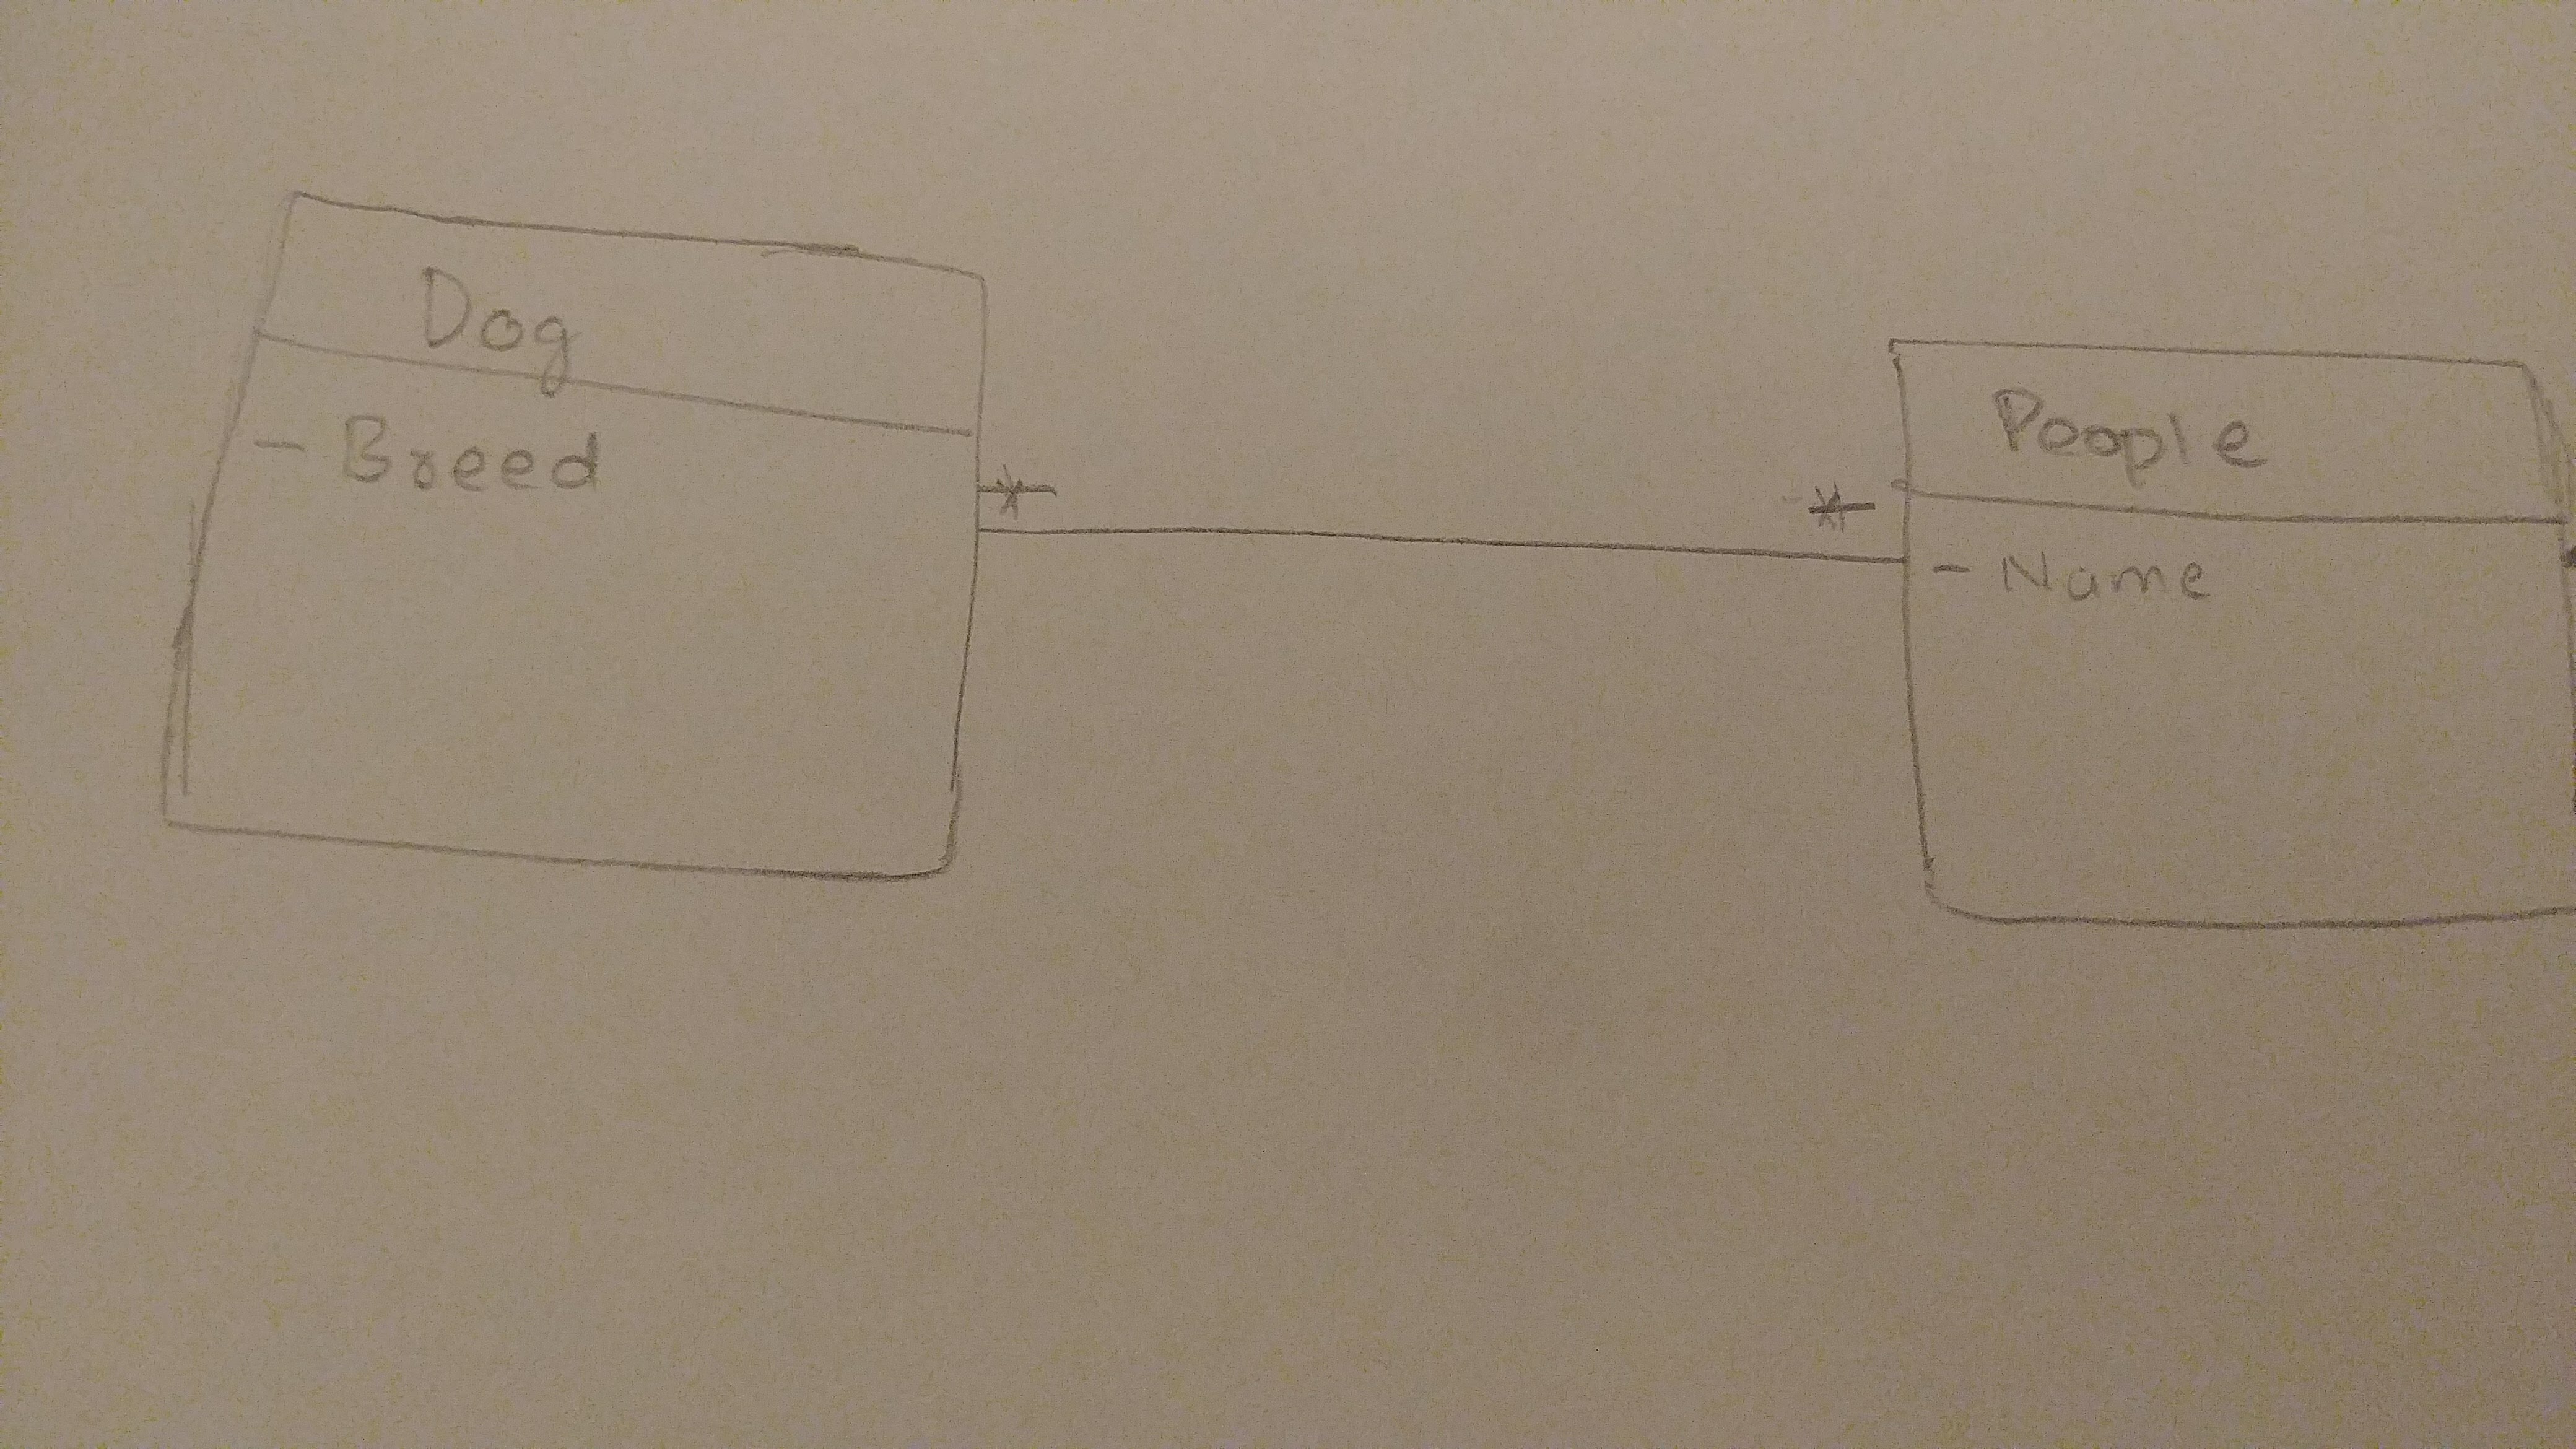 Dog
- Breed
*
*
People
- Name